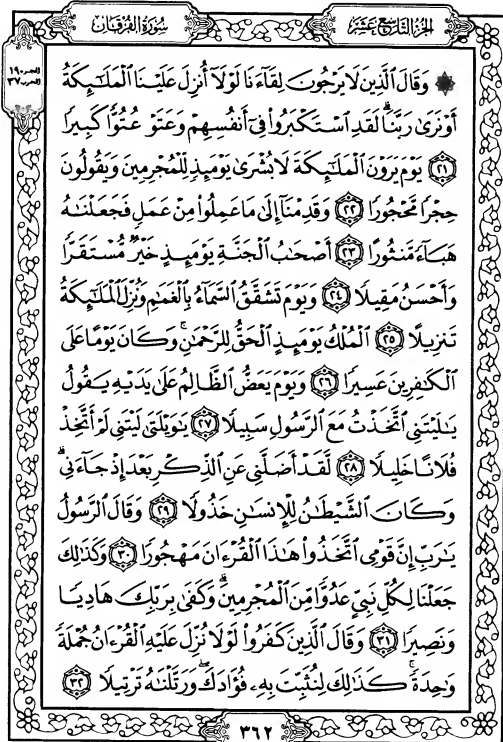 الجزء التاسع عشر
سورة الفرقان
الجزء ١٩
الحزب ٣٧
۞ وَقَالَ ٱلَّذِينَ لَا يَرْجُونَ لِقَآءَنَا لَوْلَآ أُنزِلَ عَلَيْنَا ٱلْمَلَـٰٓئِكَةُ
أَوْ نَرَىٰ رَبَّنَا ۗ لَقَدِ ٱسْتَكْبَرُوا۟ فِىٓ أَنفُسِهِمْ وَعَتَوْ عُتُوًّا كَبِيرًا
﴿٢١﴾ يَوْمَ يَرَوْنَ ٱلْمَلَـٰٓئِكَةَ لَا بُشْرَىٰ يَوْمَئِذٍ لِّلْمُجْرِمِينَ وَيَقُولُونَ
حِجْرًا مَّحْجُورًا ﴿٢٢﴾ وَقَدِمْنَآ إِلَىٰ مَا عَمِلُوا۟ مِنْ عَمَلٍ فَجَعَلْنَـٰهُ
هَبَآءً مَّنثُورًا ﴿٢٣﴾ أَصْحَـٰبُ ٱلْجَنَّةِ يَوْمَئِذٍ خَيْرٌ مُّسْتَقَرًّا
وَأَحْسَنُ مَقِيلًا ﴿٢٤﴾ وَيَوْمَ تَشَقَّقُ ٱلسَّمَآءُ بِٱلْغَمَـٰمِ وَنُزِّلَ ٱلْمَلَـٰٓئِكَةُ
تَنزِيلًا ﴿٢٥﴾ ٱلْمُلْكُ يَوْمَئِذٍ ٱلْحَقُّ لِلرَّحْمَـٰنِ ۚ وَكَانَ يَوْمًا عَلَى
ٱلْكَـٰفِرِينَ عَسِيرًا ﴿٢٦﴾ وَيَوْمَ يَعَضُّ ٱلظَّالِمُ عَلَىٰ يَدَيْهِ يَقُولُ
يَـٰلَيْتَنِى ٱتَّخَذْتُ مَعَ ٱلرَّسُولِ سَبِيلًا ﴿٢٧﴾ يَـٰوَيْلَتَىٰ لَيْتَنِى لَمْ أَتَّخِذْ
فُلَانًا خَلِيلًا ﴿٢٨﴾ لَّقَدْ أَضَلَّنِى عَنِ ٱلذِّكْرِ بَعْدَ إِذْ جَآءَنِى ۗ
وَكَانَ ٱلشَّيْطَـٰنُ لِلْإِنسَـٰنِ خَذُولًا ﴿٢٩﴾ وَقَالَ ٱلرَّسُولُ
يَـٰرَبِّ إِنَّ قَوْمِى ٱتَّخَذُوا۟ هَـٰذَا ٱلْقُرْءَانَ مَهْجُورًا ﴿٣٠﴾ وَكَذَٰلِكَ
جَعَلْنَا لِكُلِّ نَبِىٍّ عَدُوًّا مِّنَ ٱلْمُجْرِمِينَ ۗ وَكَفَىٰ بِرَبِّكَ هَادِيًا
وَنَصِيرًا ﴿٣١﴾ وَقَالَ ٱلَّذِينَ كَفَرُوا۟ لَوْلَا نُزِّلَ عَلَيْهِ ٱلْقُرْءَانُ جُمْلَةً
وَٰحِدَةً ۚ كَذَٰلِكَ لِنُثَبِّتَ بِهِۦ فُؤَادَكَ ۖ وَرَتَّلْنَـٰهُ تَرْتِيلًا ﴿٣٢﴾
٣٦٢